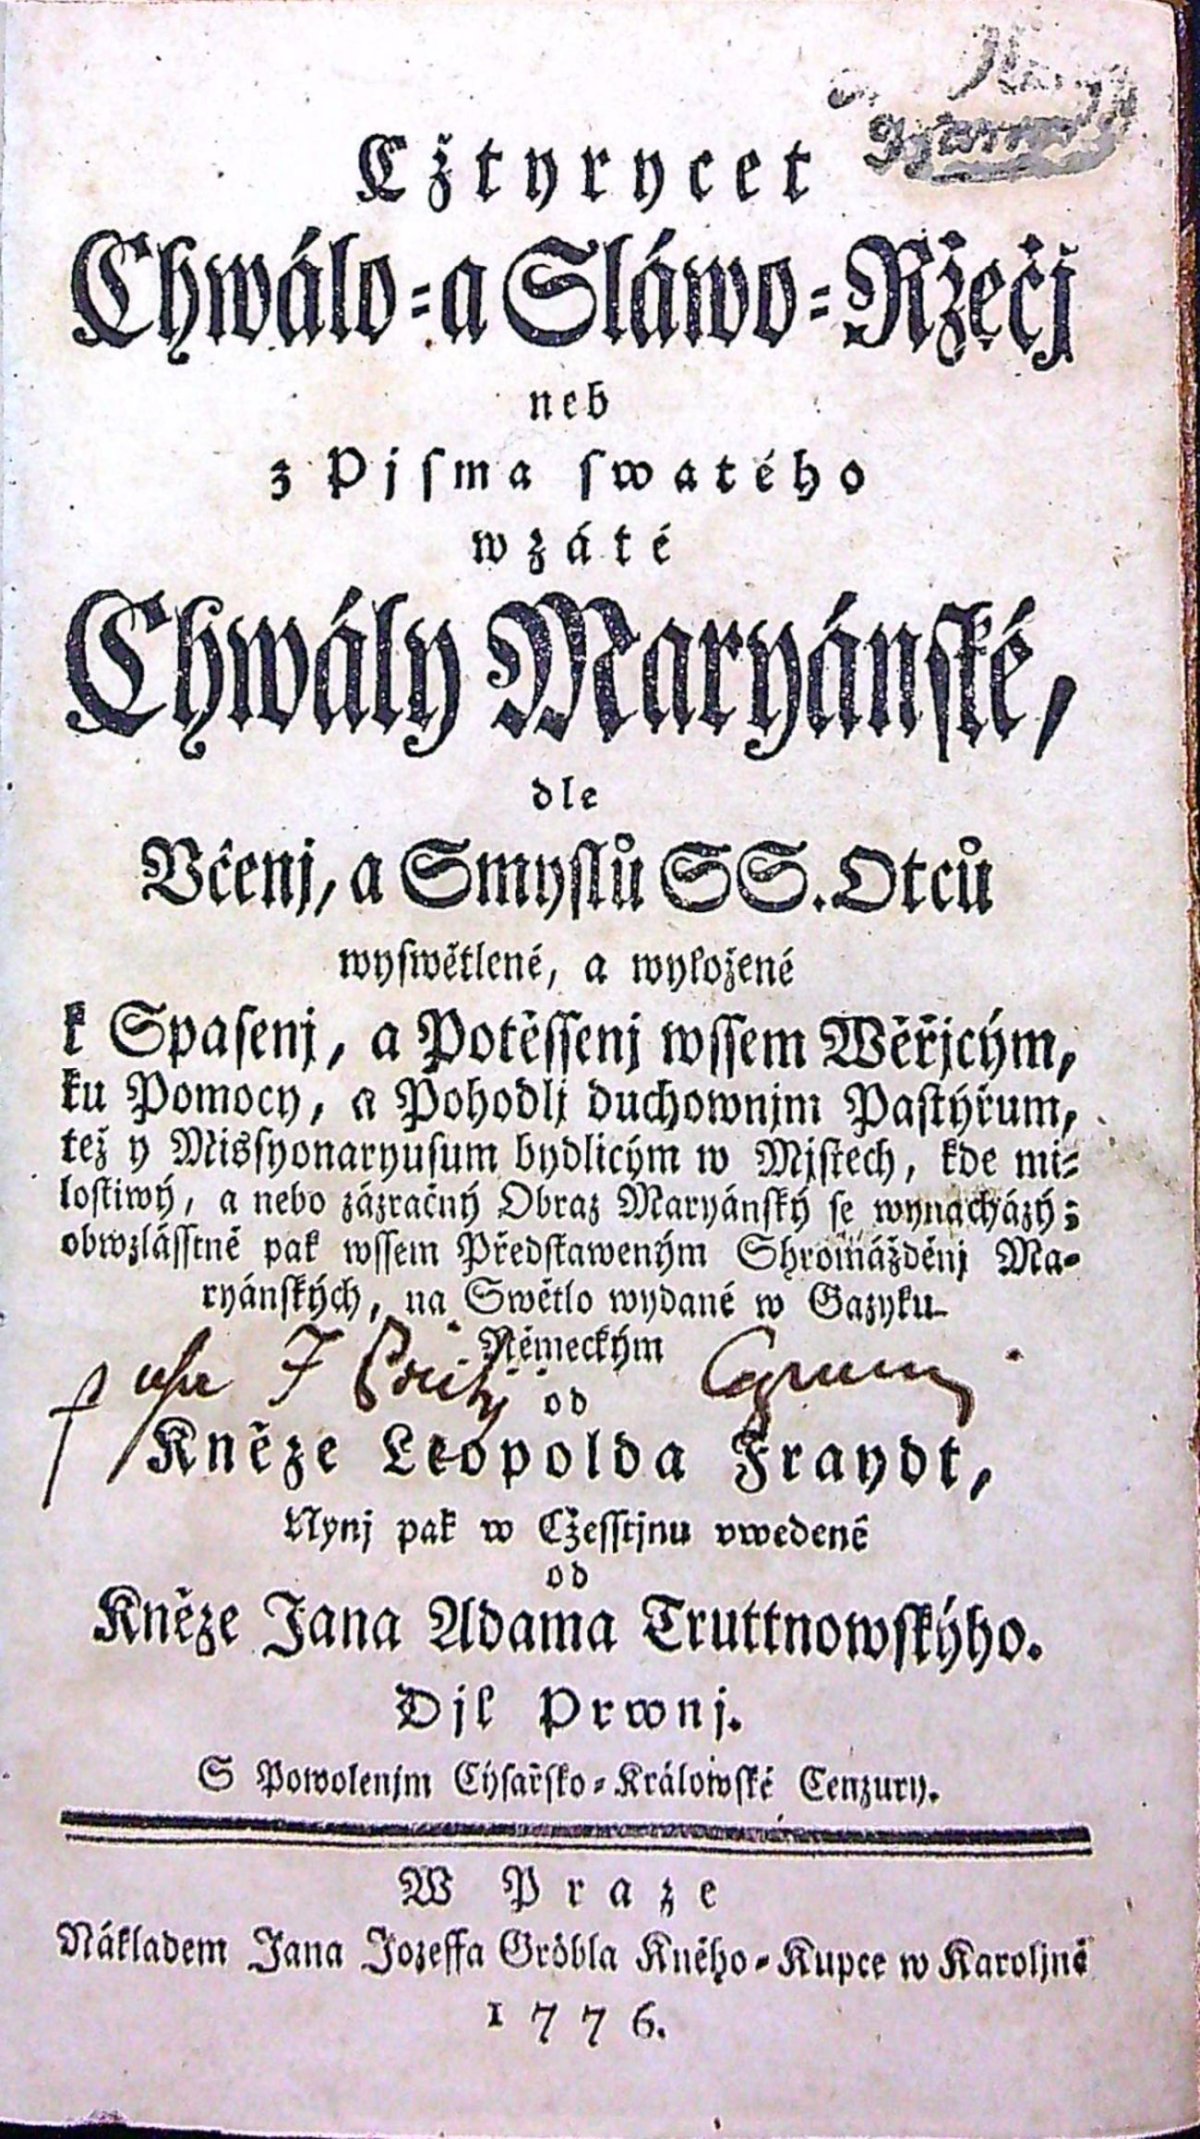 Cžtyrycet
Chwálo-a Sláwo-Ržečj
neb
z Pjsma swatého
wzáté
Chwály Maryánské,
dle
Včenj, a Smyslů SS. Otců
wyswětlené, a wyložené
k Spasenj, a Potěssenj wssem Wěřjcým,
ku Pomocy, a Pohodlj duchownjm Pastýřum,
též y Missyonaryusum bydlicým w Mjstech, kde mi-
lostiwý, a nebo zázračný Obraz Maryánský se wynacházý;
obwzlásstně pak wssem Předstaweným Shromážděnj Ma-
ryánských, na Swětlo wydané w Gazyku
Německým
od
Kněze Leopolda Fraydt,
Nynj pak w Cžesstjnu vwedené
od
Kněze Jana Adama Truttnowskýho.
Djl Prwnj.
S Powolenjm Cýsařsko-Králowské Cenzury.
W Praze
Nákladem Jana Jozeffa Gröbla Kněho-Kupce w Karoljně
1776.